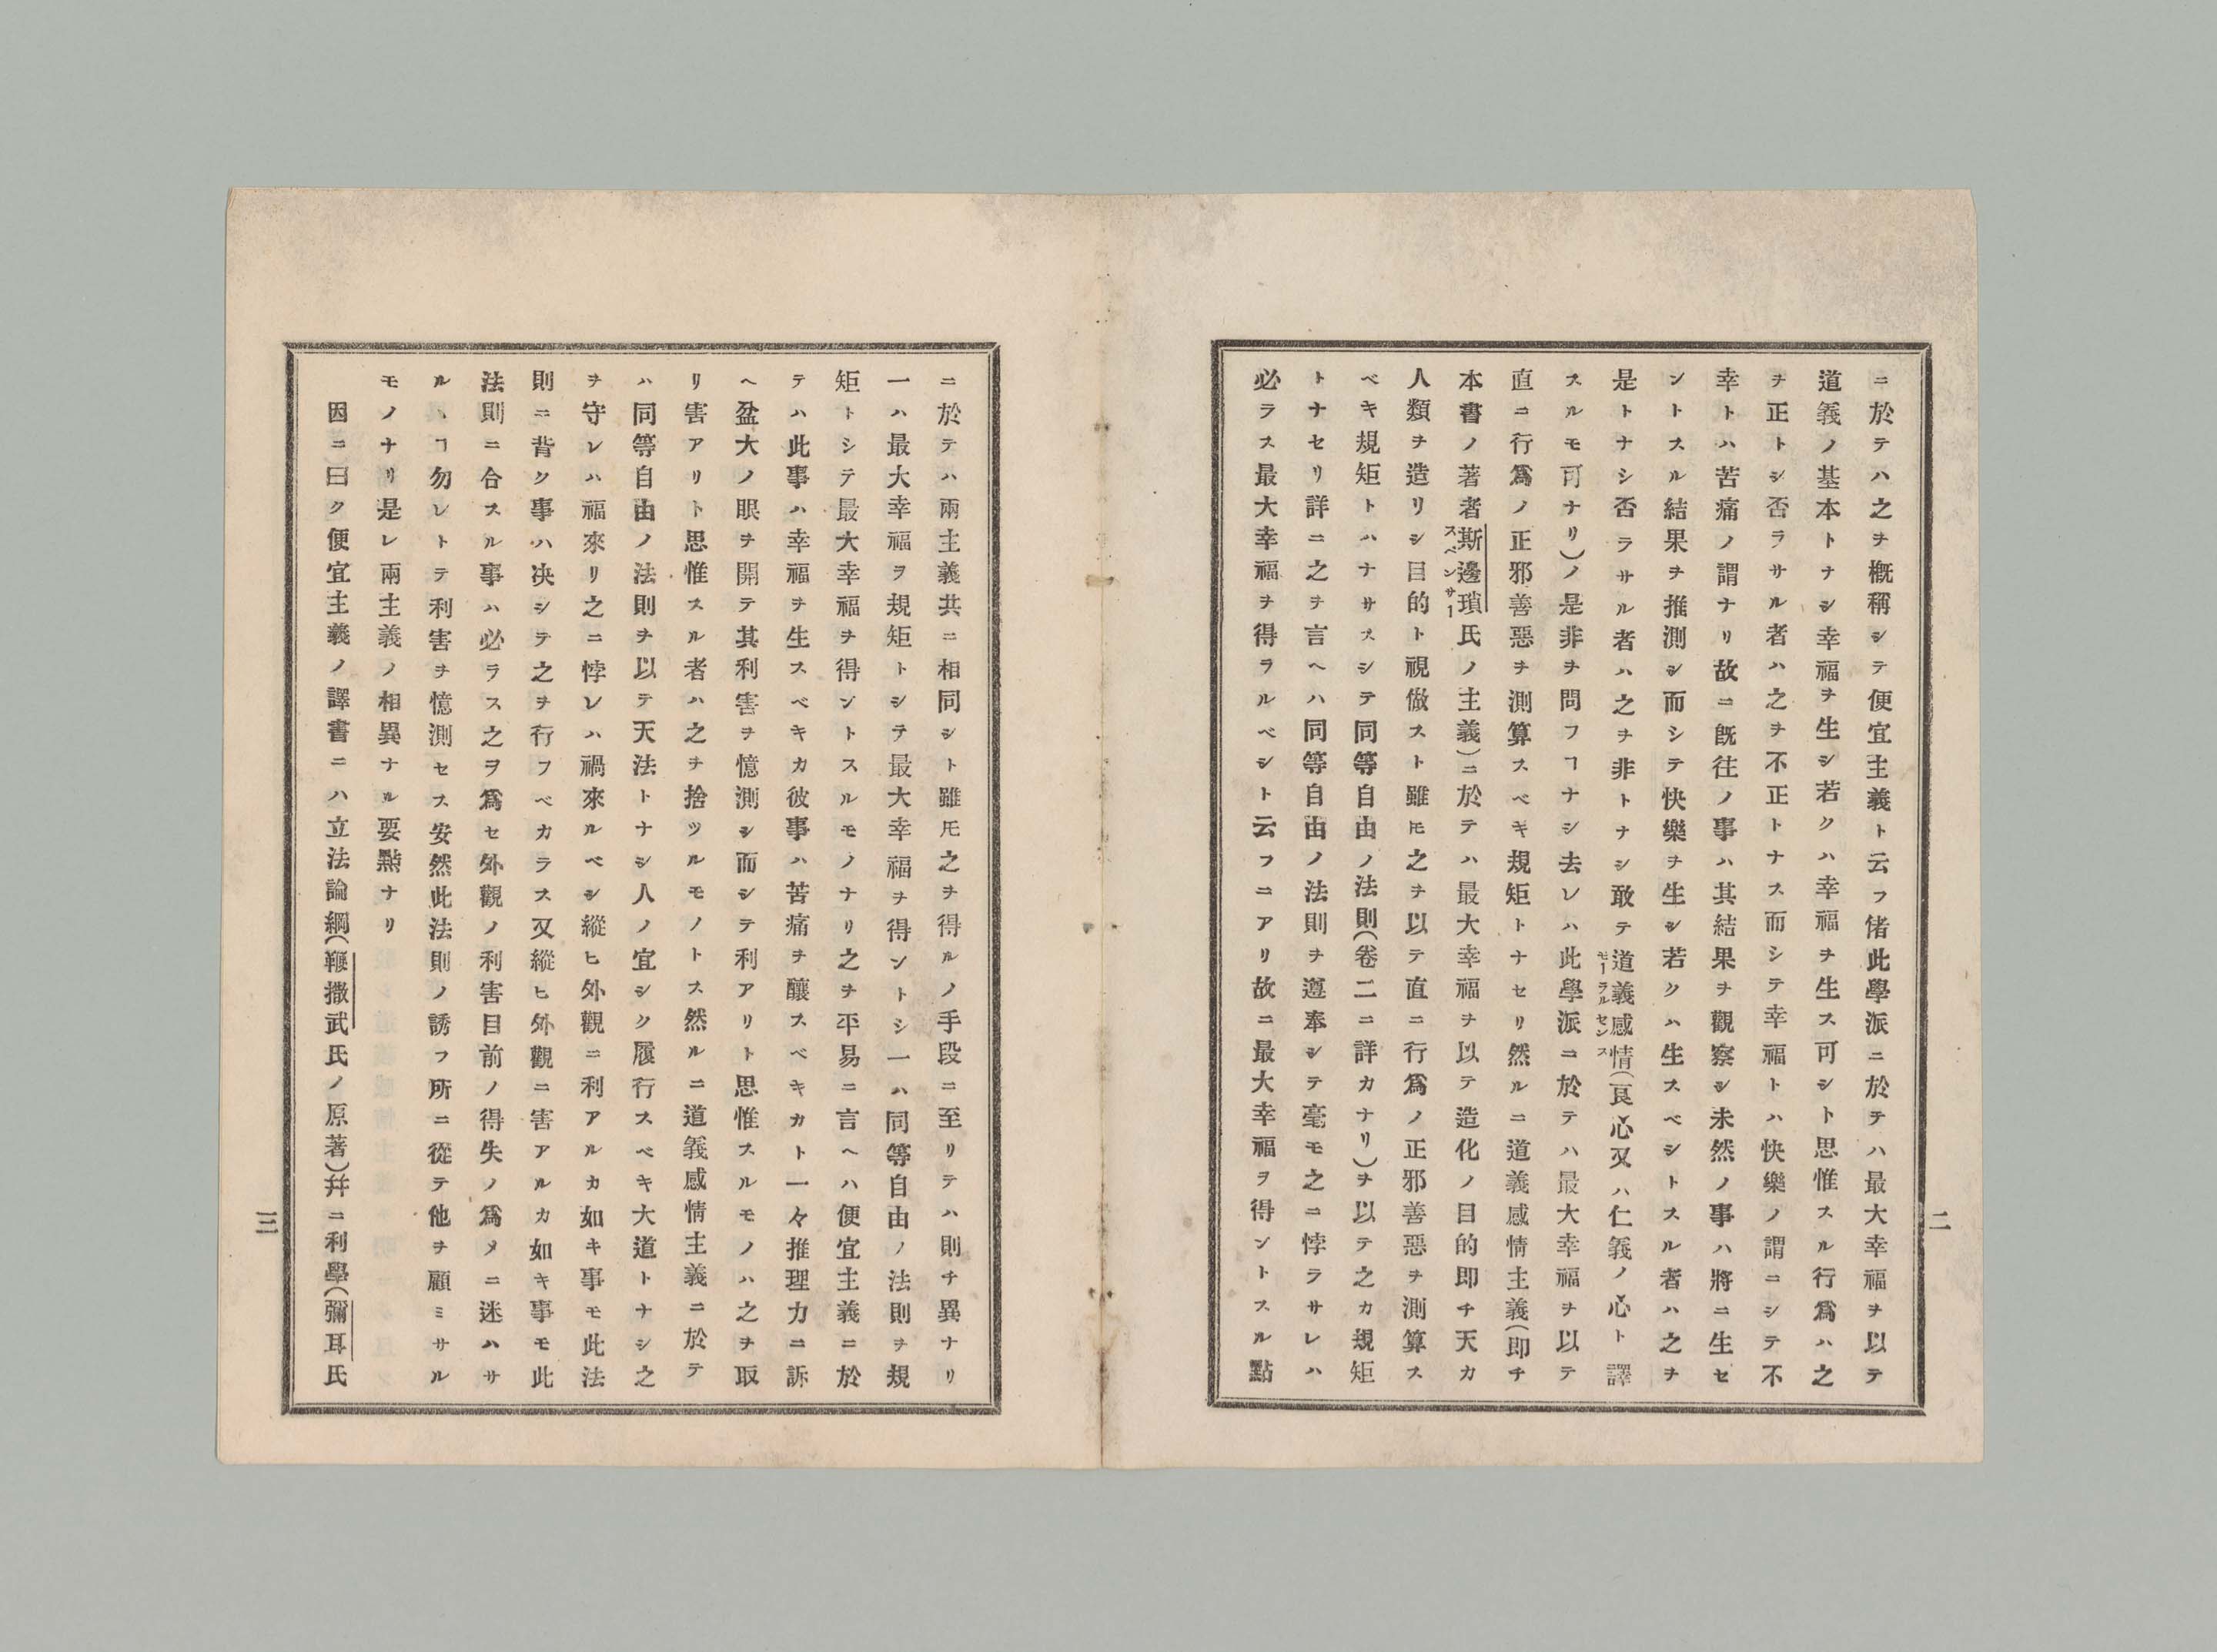 ニ於テハ之ヲ概稱シテ便宜主義ト云フ偖此學派ニ於テハ最大幸福ヲ以テ
道義ノ基本トナシ幸福ヲ生シ若クハ幸福ヲ生ス可シト思惟スル行爲ハ之
ヲ正トシ否ラサル者ハ之ヲ不正トナス而シテ幸福トハ快樂ノ謂ニシテ不
幸トハ苦痛ノ謂ナリ故ニ既往ノ事ハ其結果ヲ觀察シ未然ノ事ハ將ニ生セ
ントスル結果ヲ推測シ而シテ快樂ヲ生シ若クハ生スベシトスル者ハ之ヲ
是トナシ否ラサル者ハ之ヲ非トナシ敢テ道義感情(良心又ハ仁義ノ心ト譯
モーラルセンス
スルモ可ナリ)ノ是非ヲ問フヿナシ去レハ此學派ニ於テハ最大幸福ヲ以テ
直ニ行爲ノ正邪善惡ヲ測算スベキ規矩トナセリ然ルニ道義感情主義(即チ
本書ノ著者斯邊瑣氏ノ主義)ニ於テハ最大幸福ヲ以テ造化ノ目的即チ天カ
スペンサー
人類ヲ造リシ目的ト視做スト雖𪜈之ヲ以テ直ニ行爲ノ正邪善惡ヲ測算ス
ベキ規矩トハナサスシテ同等自由ノ法則(卷二ニ詳カナリ)ヲ以テ之カ規矩
トナセリ詳ニ之ヲ言ヘハ同等自由ノ法則ヲ遵奉シテ毫モ之ニ悖ラサレハ
必ラス最大幸福ヲ得ラルベシト云フニアリ故ニ最大幸福ヲ得ントスル點
二
ニ於テハ兩主義共ニ相同シト雖𪜈之ヲ得ルノ手段ニ至リテハ則チ異ナリ
一ハ最大幸福ヲ規矩トシテ最大幸福ヲ得ントシ一ハ同等自由ノ法則ヲ規
矩トシテ最大幸福ヲ得ントスルモノナリ之ヲ平易ニ言ヘハ便宜主義ニ於
テハ此事ハ幸福ヲ生スベキカ彼事ハ苦痛ヲ釀スベキカト一々推理力ニ訴
ヘ盆大ノ眼ヲ開テ其利害ヲ憶測シ而シテ利アリト思惟スルモノハ之ヲ取
リ害アリト思惟スル者ハ之ヲ捨ツルモノトス然ルニ道義感情主義ニ於テ
ハ同等自由ノ法則ヲ以テ天法トナシ人ノ宜シク履行スベキ大道トナシ之
ヲ守レハ福來リ之ニ悖レハ禍來ルベシ縱ヒ外觀ニ利アルカ如キ事モ此法
則ニ背ク事ハ决シテ之ヲ行フベカラス又縱ヒ外觀ニ害アルカ如キ事モ此
法則ニ合スル事ハ必ラス之ヲ爲セ外觀ノ利害目前ノ得失ノ爲メニ迷ハサ
ルヽヿ勿レトテ利害ヲ憶測セス安然此法則ノ誘フ所ニ從テ他ヲ顧ミサル
モノナリ是レ兩主義ノ相異ナル要㸃ナリ
因ニ曰ク便宜主義ノ譯書ニハ立法論綱(鞭撒武氏ノ原著)幷ニ利學(彌耳氏
三